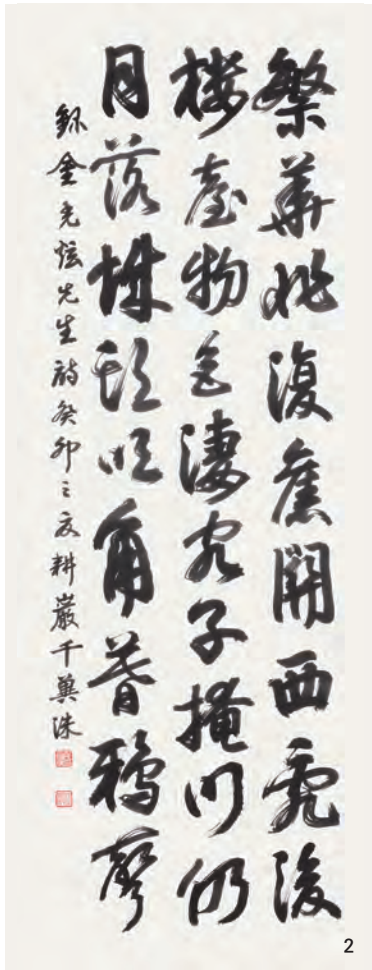 繁華非復舊關西亂後
樓臺物色凄客子掩門仍
月落城頭吹角暮鴉聲
錄金炫先生詩癸卯之夏耕巖千冀洙
2